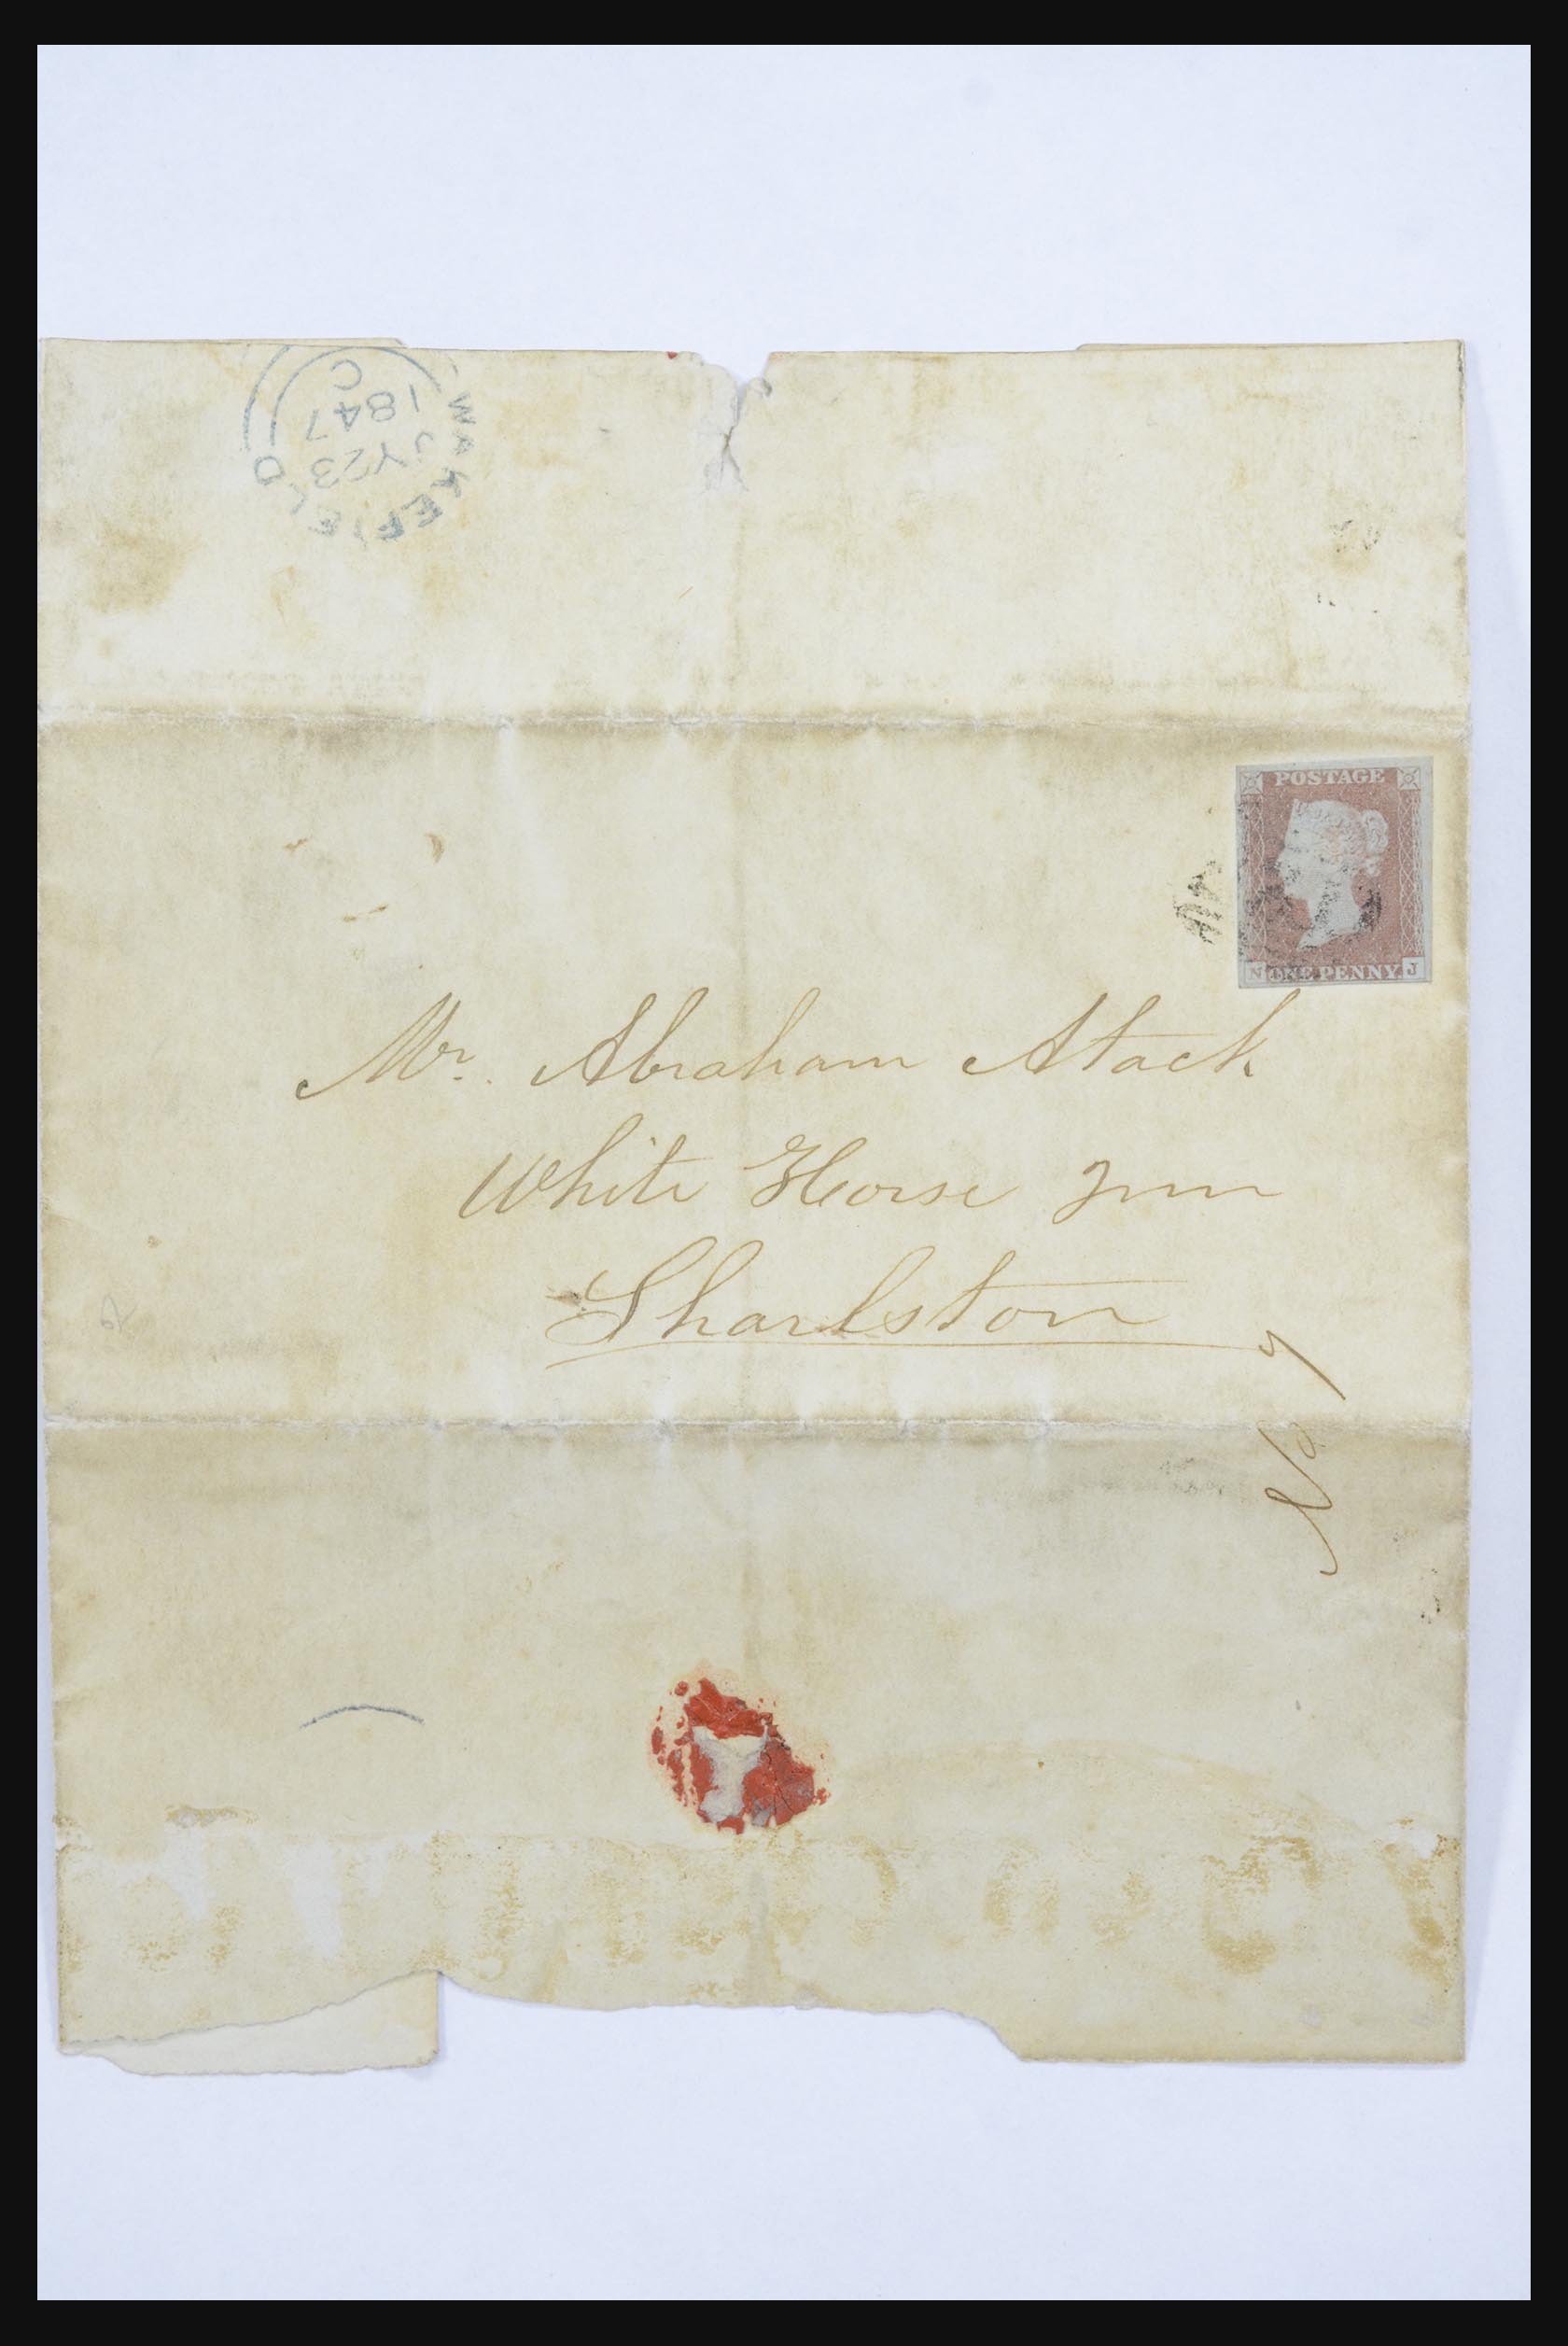 WAKEFIELD
JY 23
1847
C
POSTAGE
ONE PENNY.
N J
Mr. Abraham Atack
White Horse Inn
Sharlston
No 7